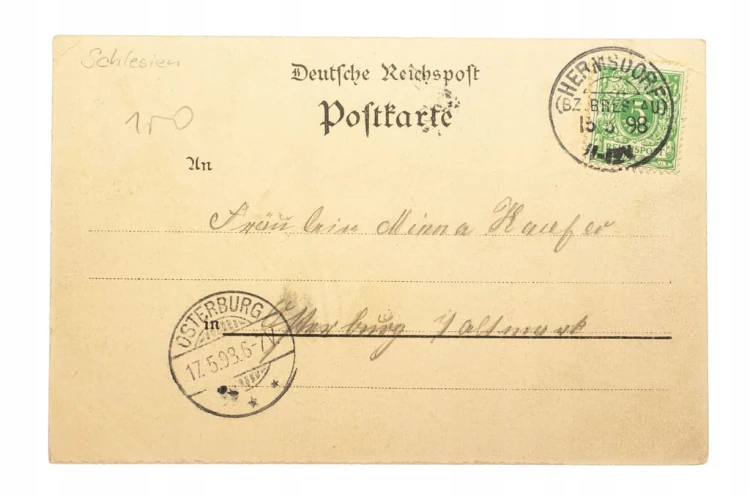 Schlesien
Deutsche Reichspost
Postkarte
150
An
HERMSDORF
(BZ. BRESLAU)
15.5.98
11-12V.
5
REICHSPOST
Fräulein Minna
in Osterburg i/Altmark
OSTERBURG
17.5.98.6-7V.